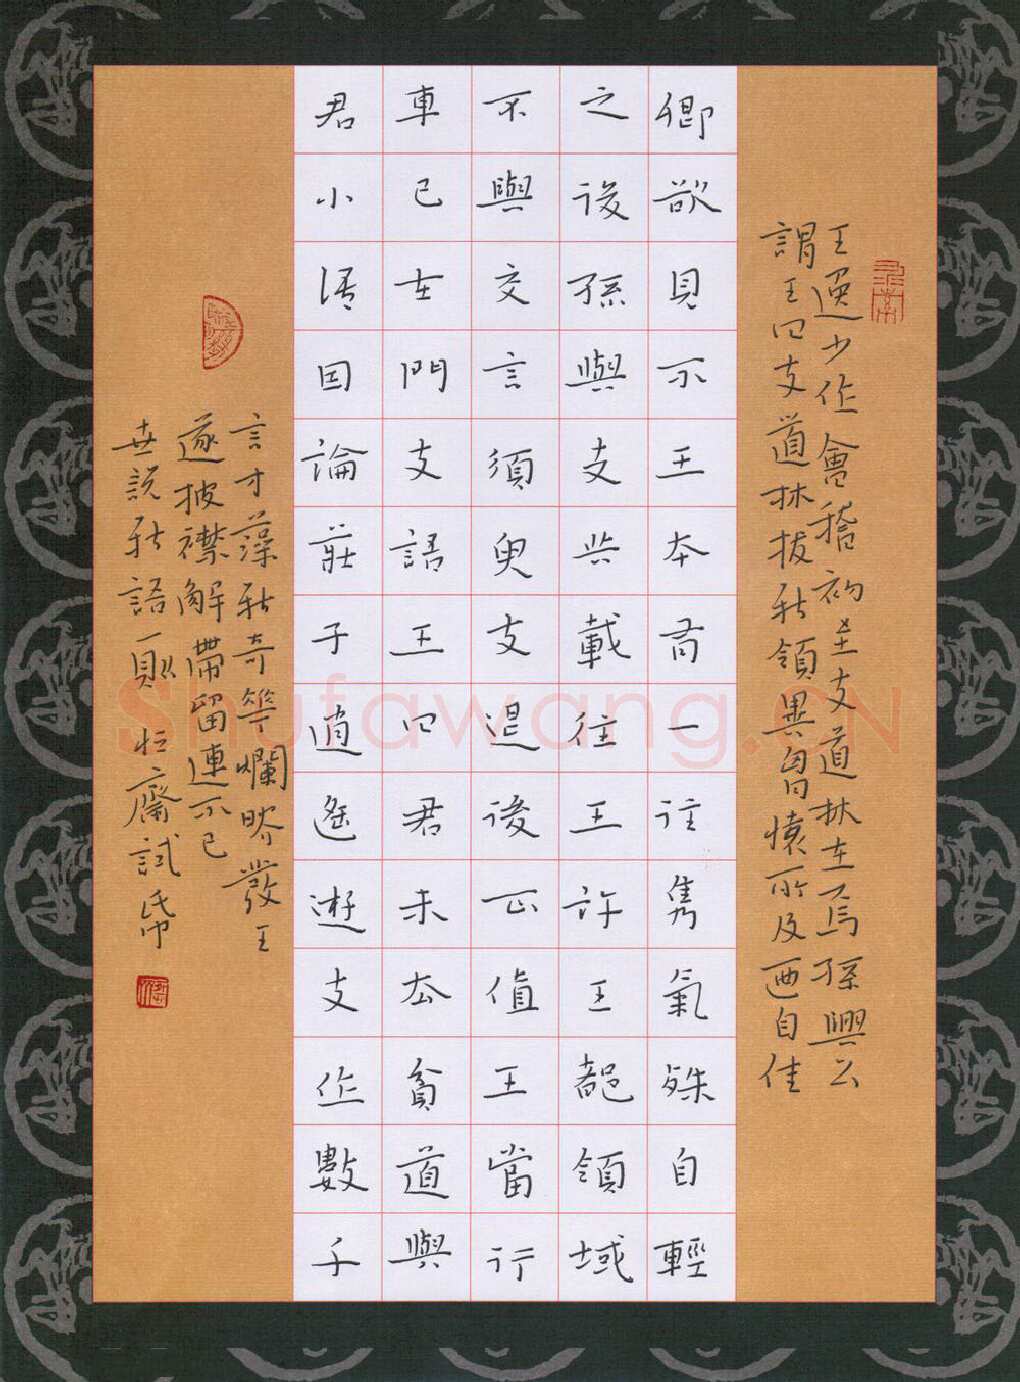 王逸少作會稽初至支道林在焉孫興公
謂王曰支道林拔新領異胸懷所及迺自佳
卿欲見不王本有一往雋氣殊自輕
之後孫與支共載往王許王都領域
不與交言須臾支退後正值王當行
車已在門支語王曰君未去貧道與
君小語因論莊子逍遙遊支作數千
言才藻新奇華爛映發王
遂披襟解帶留連不已
世說新語一則恒齋試帋
Shufawang.CN